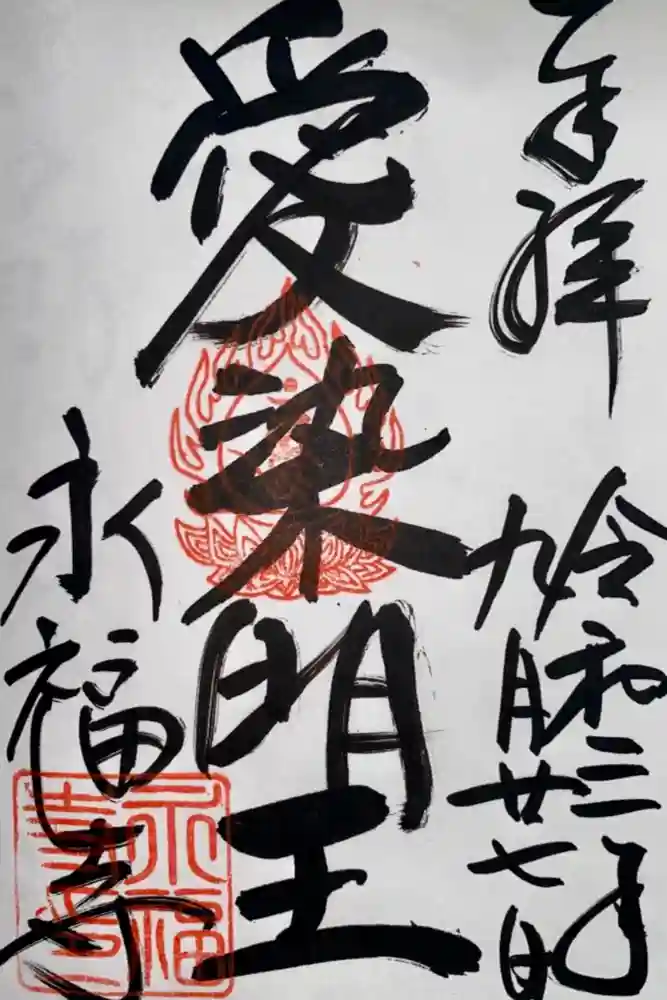 奉拝
令和三年
九月廿七日
愛染明王
永福寺
永福
寺印